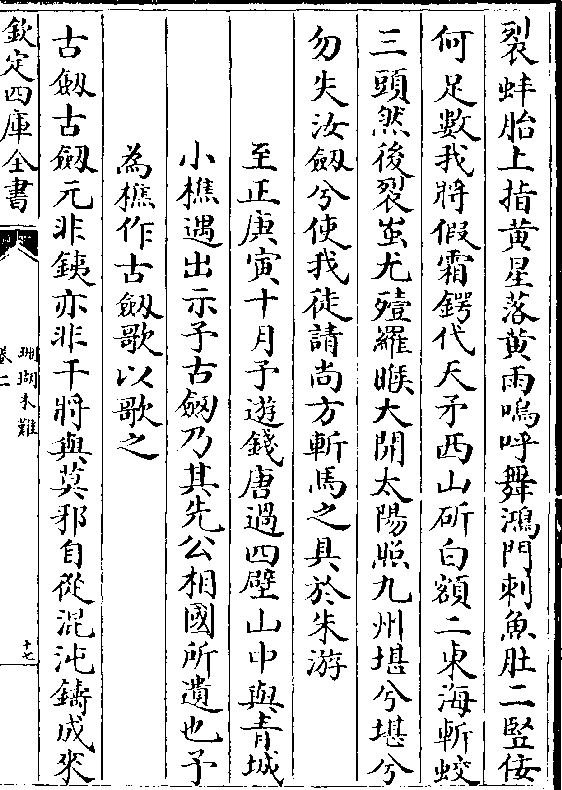 裂蚌胎上指黄星落黄雨嗚呼舞鴻門刺魚肚二豎倿
何足數我將假霜鍔代天矛西山斫白額二東海斬蛟
三頭然後裂蚩尤殪羅睺大開太陽照九州堪兮堪兮
勿失汝劔兮使我徒請尚方斬馬之具於朱游
至正庚寅十月予遊錢唐過四壁山中與青城
小樵遇出示予古劔乃其先公相國所遺也予
為樵作古劔歌以歌之
古劔古劔元非銕亦非干將與莫邪自從混沌鑄成來
欽定四庫全書
珊瑚木難
卷二
十七